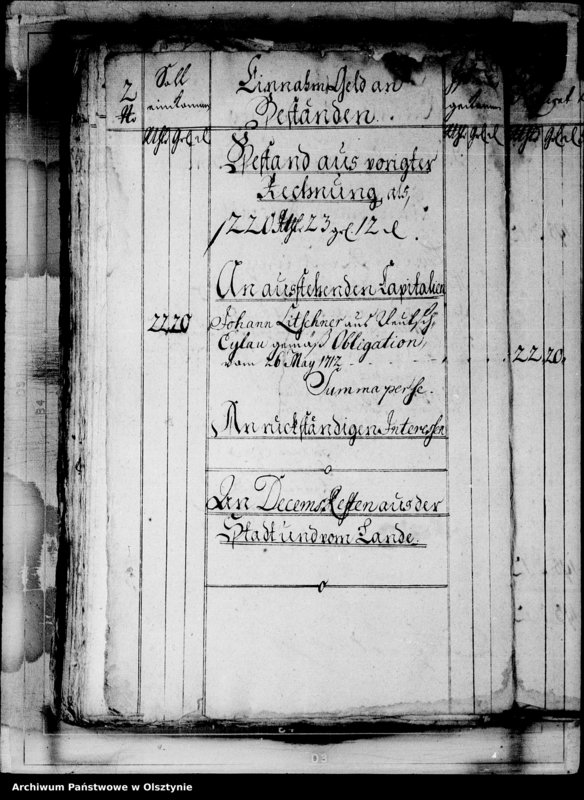 Soll
einkommen
Einnahm Geld an
Beständen.
Bestand aus vorigter
Rechnung, als,
1220 Rthl. 23 gr. 12 d.
An ausstehenden Capitalien
22 20 Johann Litschner aus Deutsch,
Eylau gemäß Obligation,
vom 26 May 1712 22 20
Summa per se.
An rückständigen Interessen
o
An Decems Resten aus der
Stadt und vom Lande.
o
D3
Archiwum Państwowe w Olsztynie